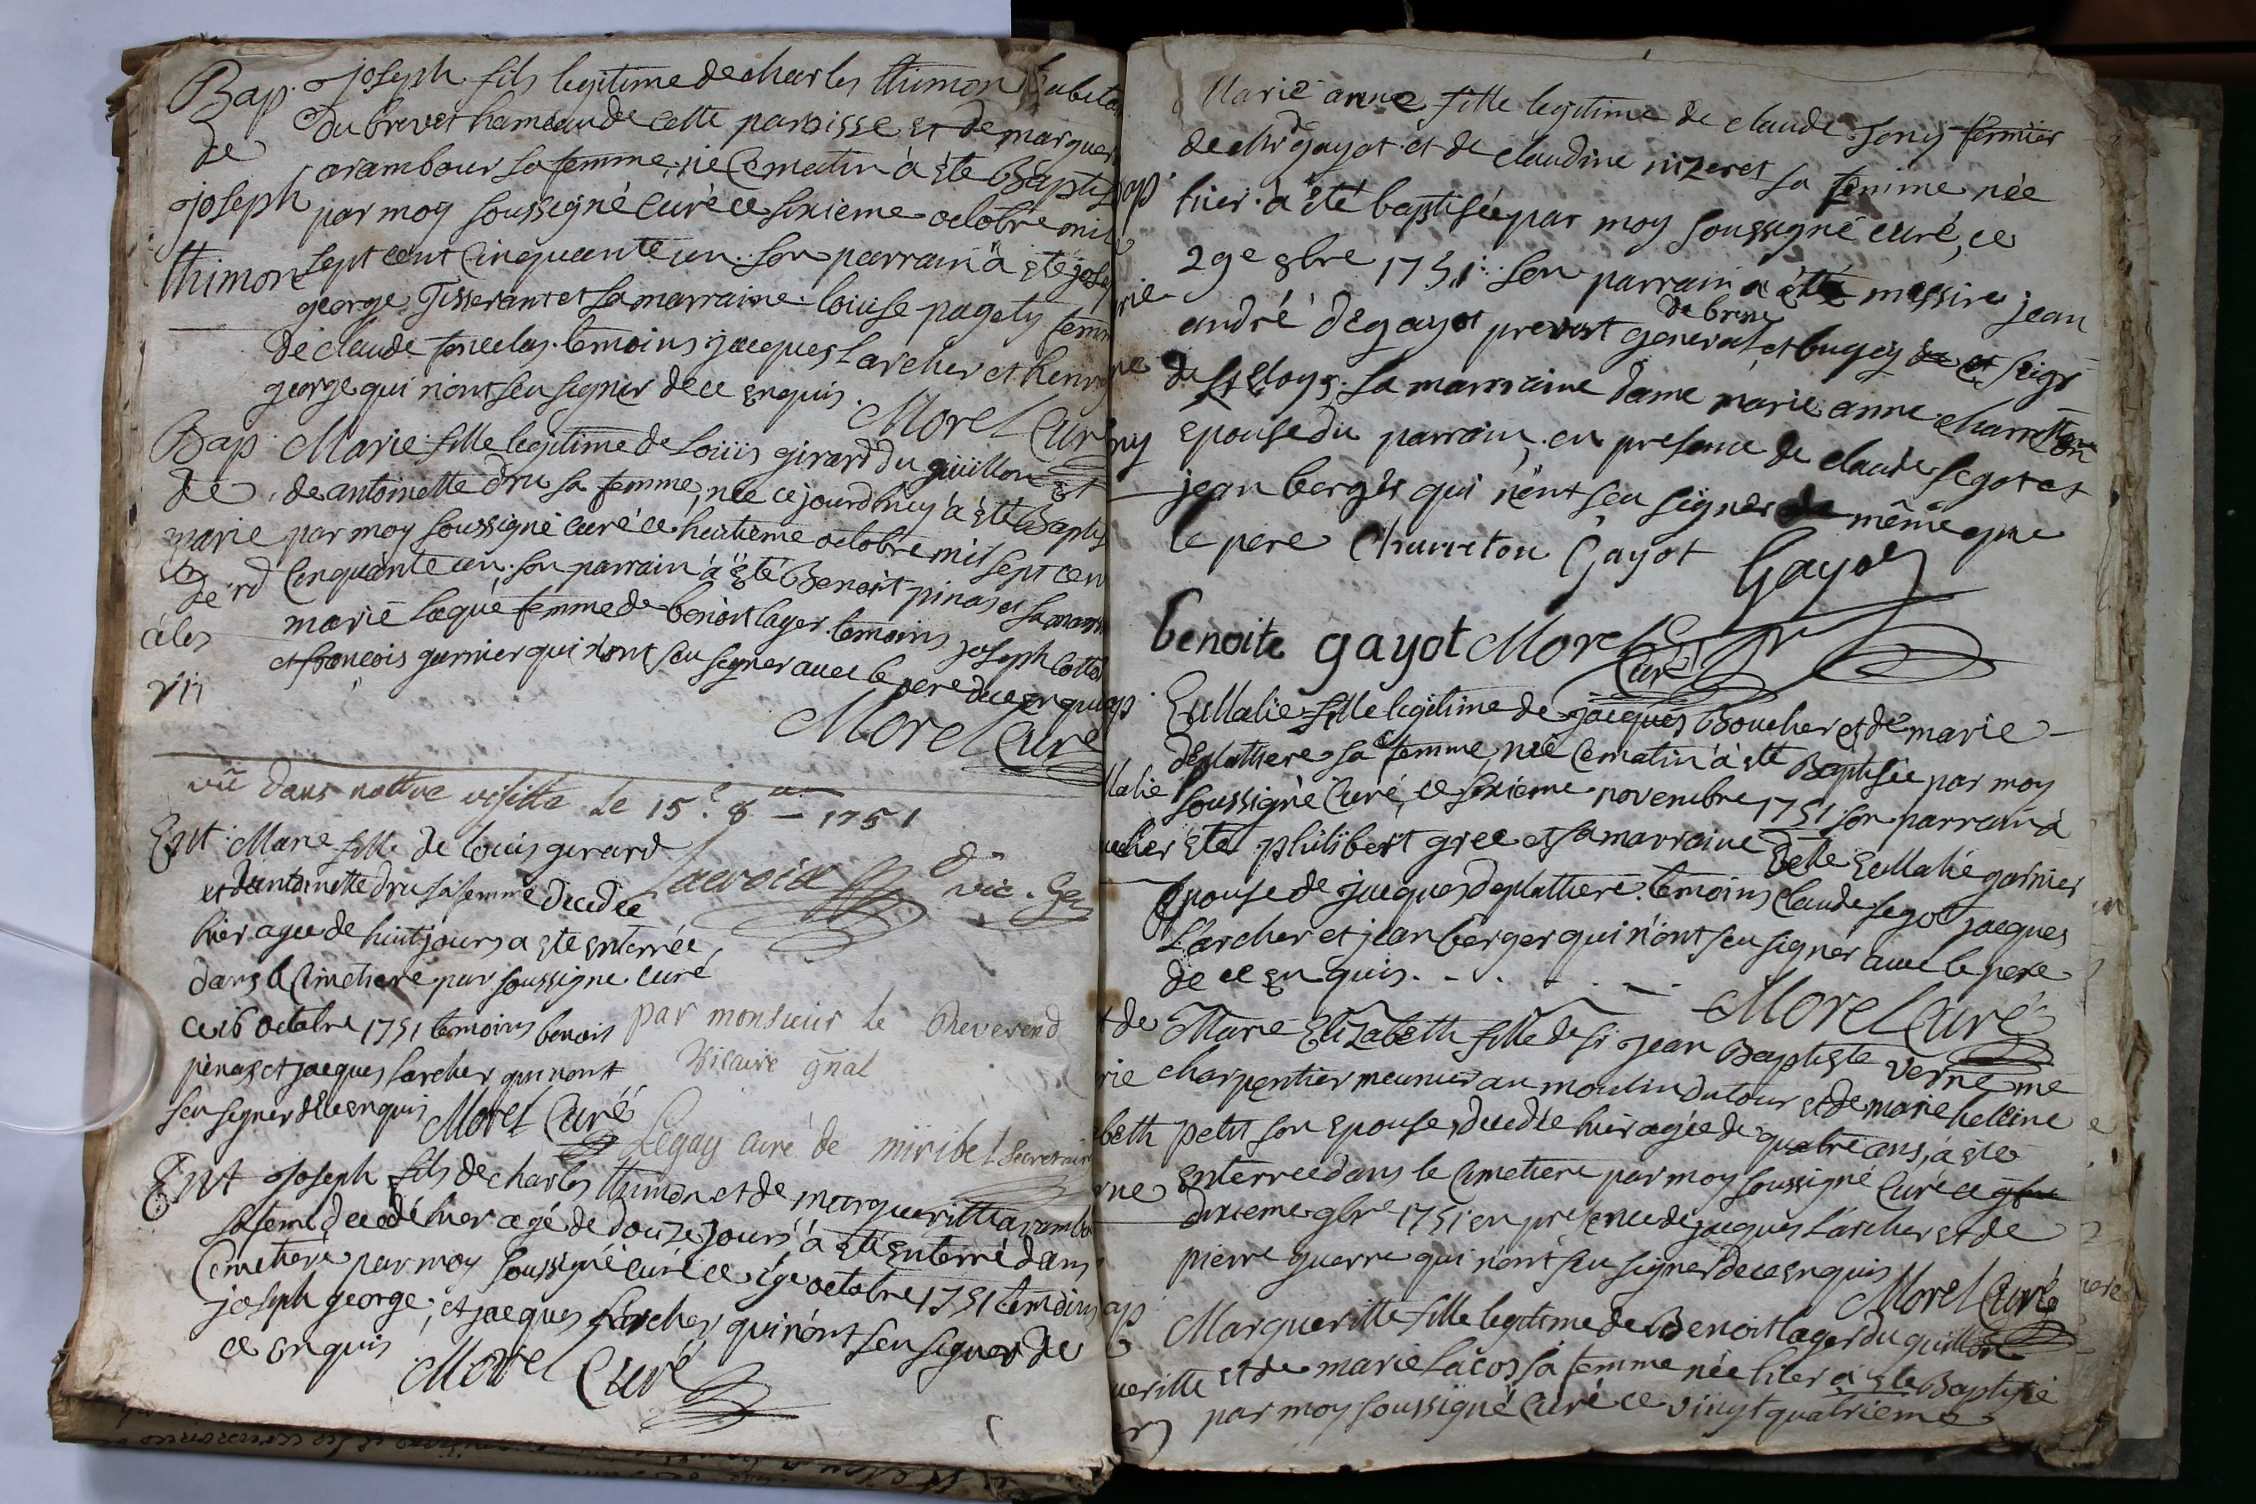 Bap. joseph fils legitime de charles thimon habita
de du brevet hameau de cette paroisse et de marguer
joseph arambour sa femme, né ce matin à été Baptis
thimon par moy soussigné curé ce sixieme octobre mil
sept cent cinquante un. son parrain à été josep
george Tisserant et sa marraine louise pagety femm
de claude temoins jacques Larcher et henry
george qui n'ont sçu signer de ce enquis.
Morel Curé
Bap. Marie fille legitime de Loüis girard du güillon et
de de antoinette dru sa femme, née ce jourdhuy à été Baptis
marie par moy soussigné curé ce huitieme octobre mil sept cen
cinquante un. son parrain à été Benoît pinas et sa marr
marie laque femme de benoit lager. temoins joseph cotte
et francois garnier qui n'ont sçu signer avec le pere de ce enquis
Morel Curé
vû dans nottre visitte le 15e 8 1751
Lacroix vic. Ge
par monsieur le Reverend
Vicaire gñal
Legay curé de miribel secretaire
Ent Marie fille de louis girard
et d'antoinette dru sa femme decedée
hier agée de huit jours a ete enterrée
dans le Cimetiere par soussigne curé
ce 16 octobre 1751 temoins benoit
pinas et jacques larcher qui n'ont
seu signer de ce enquis
Morel Curé
Ent joseph fils de charles thimon et de margueritte arambou
sa feme decedé hier agé de douze jours à été enterré dans
Cimetiere par moy soussigné curé ce octobre 1751 temoins
joseph george, et jacques Larcher qui n'ont seu signer de
ce enquis
Morel Curé
Marie anne fille legitime de claude Tony fermier
de Mr de gayot et de claudine nizeret sa femme née
hier à été baptisée par moy soussigné curé, ce
29e 8bre 1751. son parrain à été messire jean
andré degayot prevost general de bresse et bugey et seigr
de St Eloys. sa marraine dame marie anne charretton
epouse du parrain, en presence de claude segot et
jean berger qui n'ont seu signer de même que
le pere Charreton Gayot Gayot
benoite gayot Morel Curé
Eullalie fille legitime de jacques Boucher et de marie
deplattiere sa femme, née ce matin à été Baptisée par moy
soussigné Curé, ce sixieme novembre 1751 son parrain à
été philibert gree et sa marraine Delle Eullalie garnier
Epouse de jacques deplattiere. temoins Claude segot jacques
Larcher et jean berger qui n'ont seu signer avec le pere
de ce enquis.
Morel Curé
Marie Elizabeth fille de sr jean Baptiste verne me
charpentier meunier au moulin du tour et de marie heleine
petit son epouse, decedée hier agée de quatre ans, à été
enterrée dans le Cimetiere par moy soussigné Curé ce
dixieme 9bre 1751 en presence de jacques Larcher et de
pierre guerre qui n'ont seu signer de ce enquis
Morel Curé
Margueritte fille legitime de Benoit lager du guillon
et de marie lacos sa femme née hier à été Baptisé
par moy soussigné Curé ce vingt quatrieme